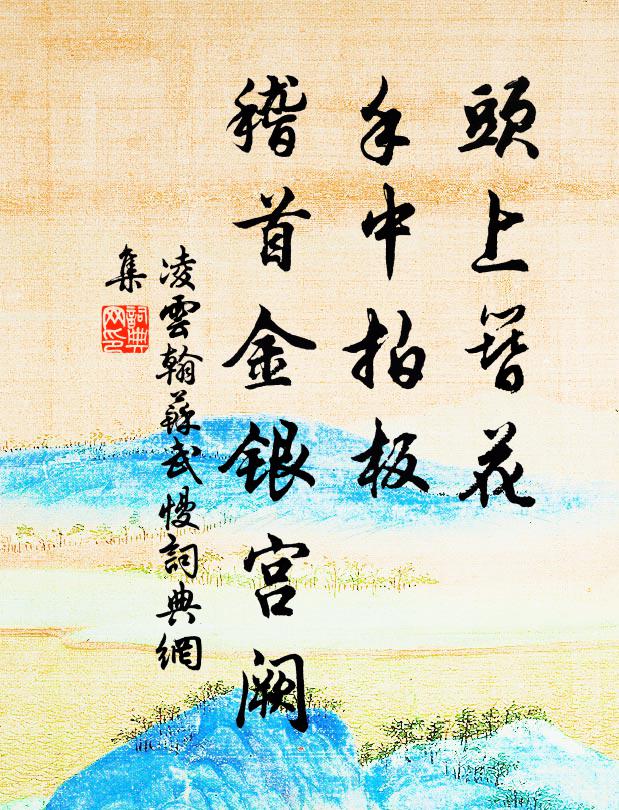 頭上簪花
手中拍板
稽首金銀宮闕
凌雲翰蘇武慢詞典網
集
詞典網印